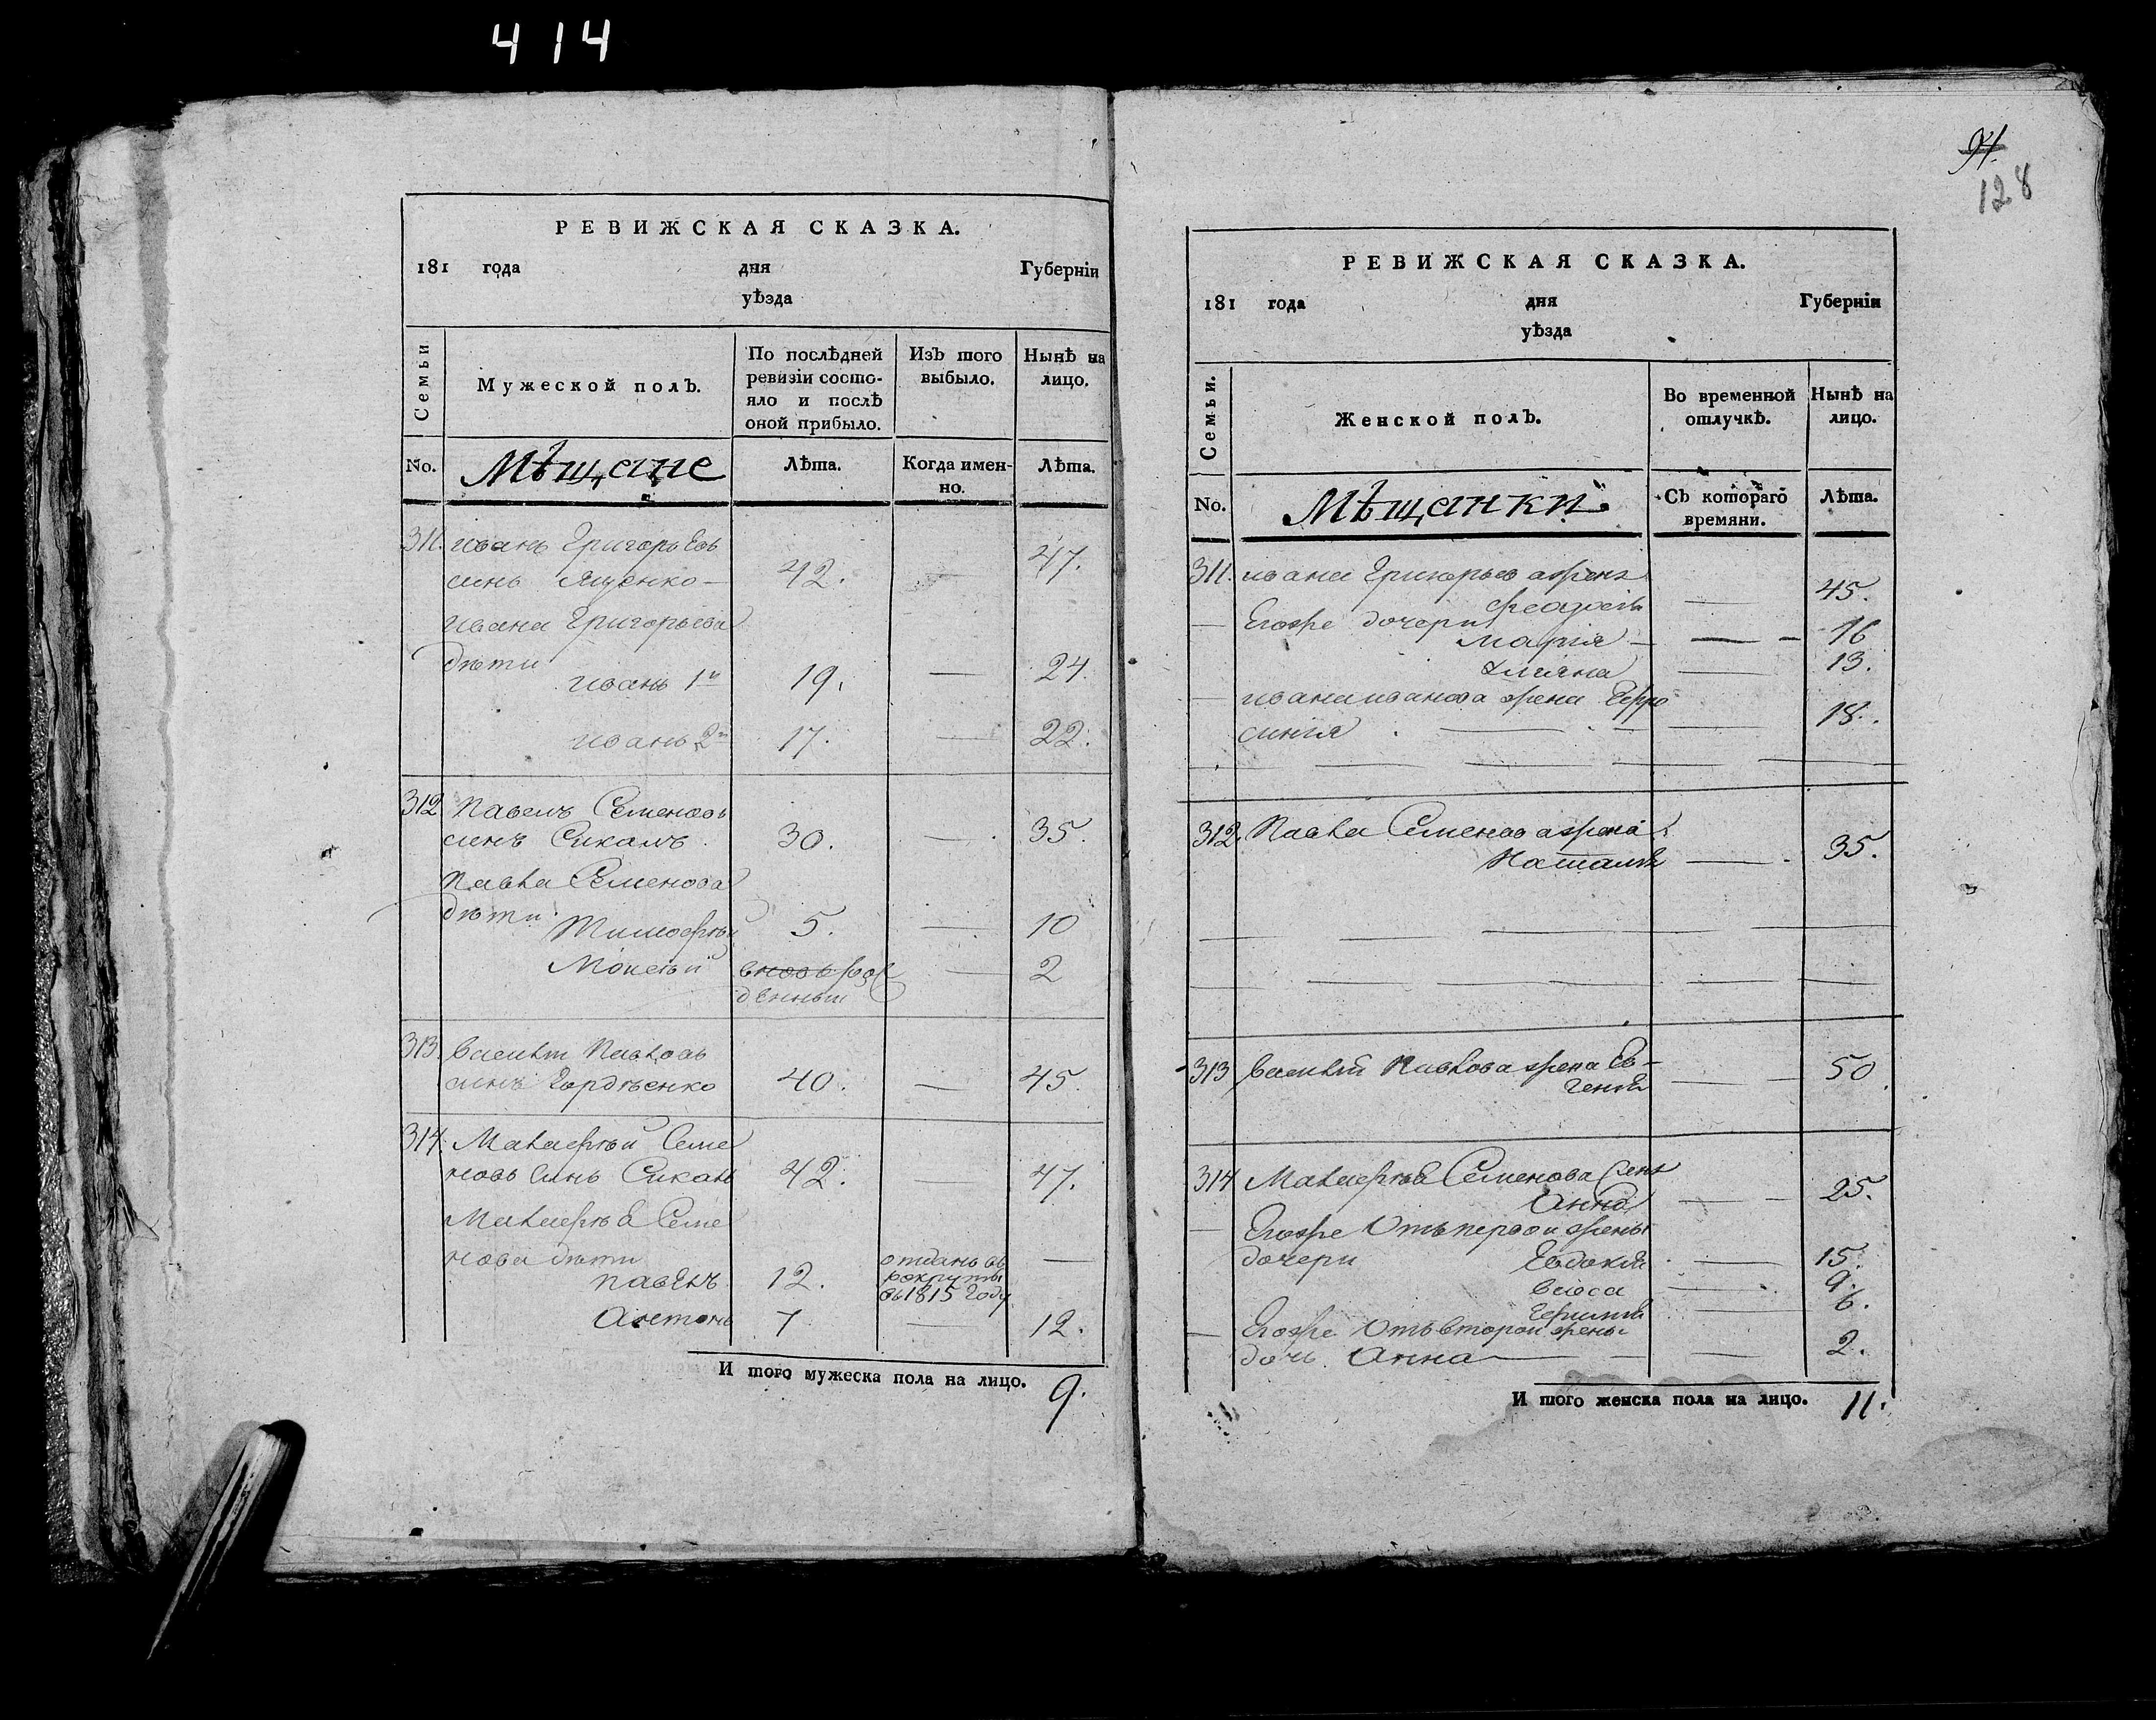 414
РЕВИЖСКАЯ СКАЗКА.
181 года дня Губерніи
уѣзда
Семьи
Мужеской полъ.
По послѣдней ревизіи состояло и послѣ оной прибыло.
Изъ того выбыло.
Нынѣ на лицо.
No. Мѣщане Лѣта. Когда именно. Лѣта.
311. иванъ Григорьевъ
синъ Яценко — 42. — 47.
ивана Григорьева
дѣти
иванъ 1й 19. — 24.
иванъ 2й 17. — 22.
312 Павелъ Семеновъ
синъ Сикалъ 30. — 35.
Павла Семенова
дѣти
Тимофѣй 5. — 10
Моисѣй вновь рож
денный — 2
313. Василѣй Павловъ
синъ Гордѣенко 40. — 45.
314. Матвѣй Семе
новъ синъ Сикалъ 42. — 47.
Семе
нова дѣти
Павелъ 12. отданъ въ рокруты въ 1815 году —
Антонъ 7 — 12.
И того мужеска пола на лицо. 9.
91.
128
РЕВИЖСКАЯ СКАЗКА.
181 года дня Губерніи
уѣзда
Семьи.
Женской полъ.
Во временной отлучкѣ.
Нынѣ на лицо.
No. Мѣщанки Съ котораго времяни. Лѣта.
311. ивана Григорьева жена
— 45.
— Егоже дочери
Марія — — 16
Уляна — 13.
— ивана иванова жена Ефро
синія — — 18.
312. Павла Семенова жена
Наталія — 35.
313 Василѣй Павлова жена Ев-
генія — 50
314 Семенова жена
Анна — 25.
— Егоже Отъ первои жены
дочери Евдокія — 15.
Васса — 9.
— 6.
— Егоже Отъ второи жены
дочь Анна — — 2.
И того женска пола на лицо. 11.